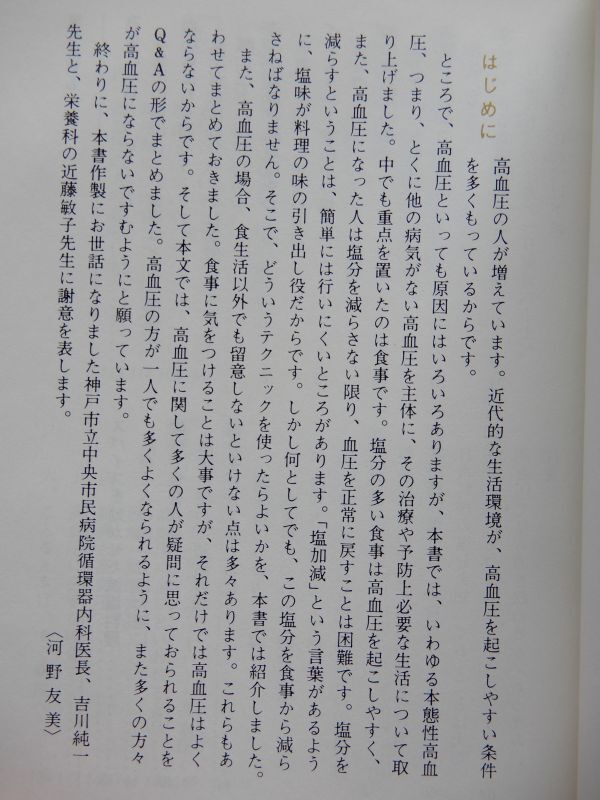 はじめに
高血圧の人が増えています。近代的な生活環境が、高血圧を起こしやすい条件
を多くもっているからです。
ところで、高血圧といっても原因にはいろいろありますが、本書では、いわゆる本態性高血
圧、つまり、とくに他の病気がない高血圧を主体に、その治療や予防上必要な生活について取
り上げました。中でも重点を置いたのは食事です。塩分の多い食事は高血圧を起こしやすく、
また、高血圧になった人は塩分を減らさない限り、血圧を正常に戻すことは困難です。塩分を
減らすということは、簡単には行いにくいところがあります。「塩加減」という言葉があるよう
に、塩味が料理の味の引き出し役だからです。しかし何としてでも、この塩分を食事から減ら
さねばなりません。そこで、どういうテクニックを使ったらよいかを、本書では紹介しました。
また、高血圧の場合、食生活以外でも留意しないといけない点は多々あります。これらもあ
わせてまとめておきました。食事に気をつけることは大事ですが、それだけでは高血圧はよく
ならないからです。そして本文では、高血圧に関して多くの人が疑問に思っておられることを
Q&Aの形でまとめました。高血圧の方が一人でも多くよくなられるように、また多くの方々
が高血圧にならないですむようにと願っています。
終わりに、本書作製にお世話になりました神戸市立中央市民病院循環器内科医長、吉川純一
先生と、栄養科の近藤敏子先生に謝意を表します。
〈河野友美〉